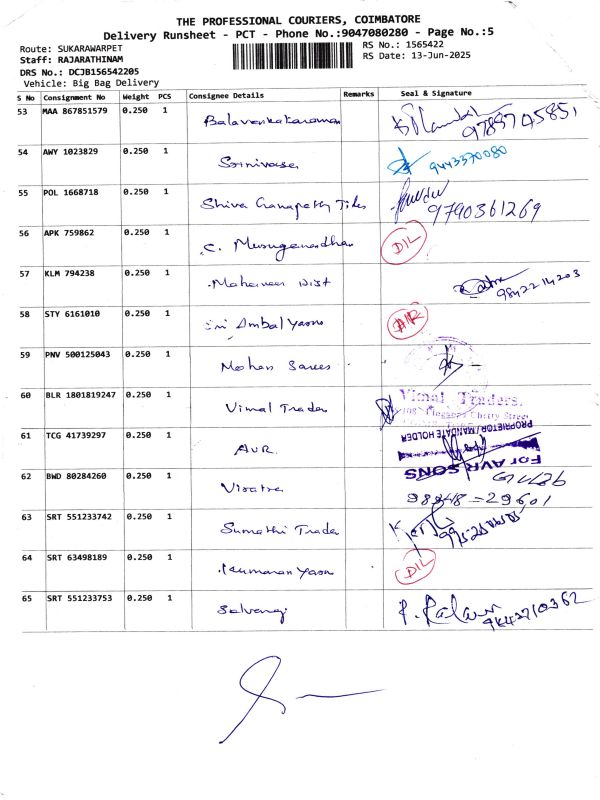 THE PROFESSIONAL COURIERS, COIMBATORE
Delivery Runsheet - PCT - Phone No.:9047080280 - Page No.:5
Route: SUKARAWARPET
RS No.: 1565422
Staff: RAJARATHINAM
RS Date: 13-Jun-2025
DRS No.: DCJB156542205
Vehicle: Big Bag Delivery
S No Consignment No Weight PCS Consignee Details Remarks Seal & Signature
53 MAA 867851579 0.250 1 Balavenkataraman
54 AWY 1023829 0.250 1 Srinivasa 9443370080
55 POL 1668718 0.250 1 Shiva Ganapathy Tides 9790361269
56 APK 759862 0.250 1 C. Murugenadhan DIL
57 KLM 794238 0.250 1 Mahaveer Dist 9842214203
58 STY 6161010 0.250 1 Sri Ambal Yarns
59 PNV 500125043 0.250 1 Mohan Sarees
60 BLR 1801819247 0.250 1 Vimal Trader Vimal Traders,
61 TCG 41739297 0.250 1 AVR PROPRIETOR / MANDATE HOLDER
For AVR SONS
62 BWD 80284260 0.250 1 98948-29601
63 SRT 551233742 0.250 1 Sumathi Trader
64 SRT 63498189 0.250 1 Kumaran Yarn DIL
65 SRT 551233753 0.250 1 Selvangi 9842710362